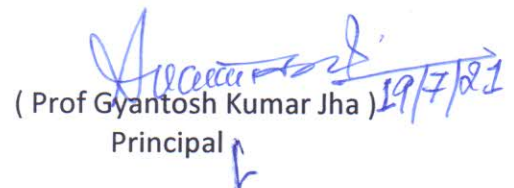 19/7/21
( Prof Gyantosh Kumar Jha )
Principal